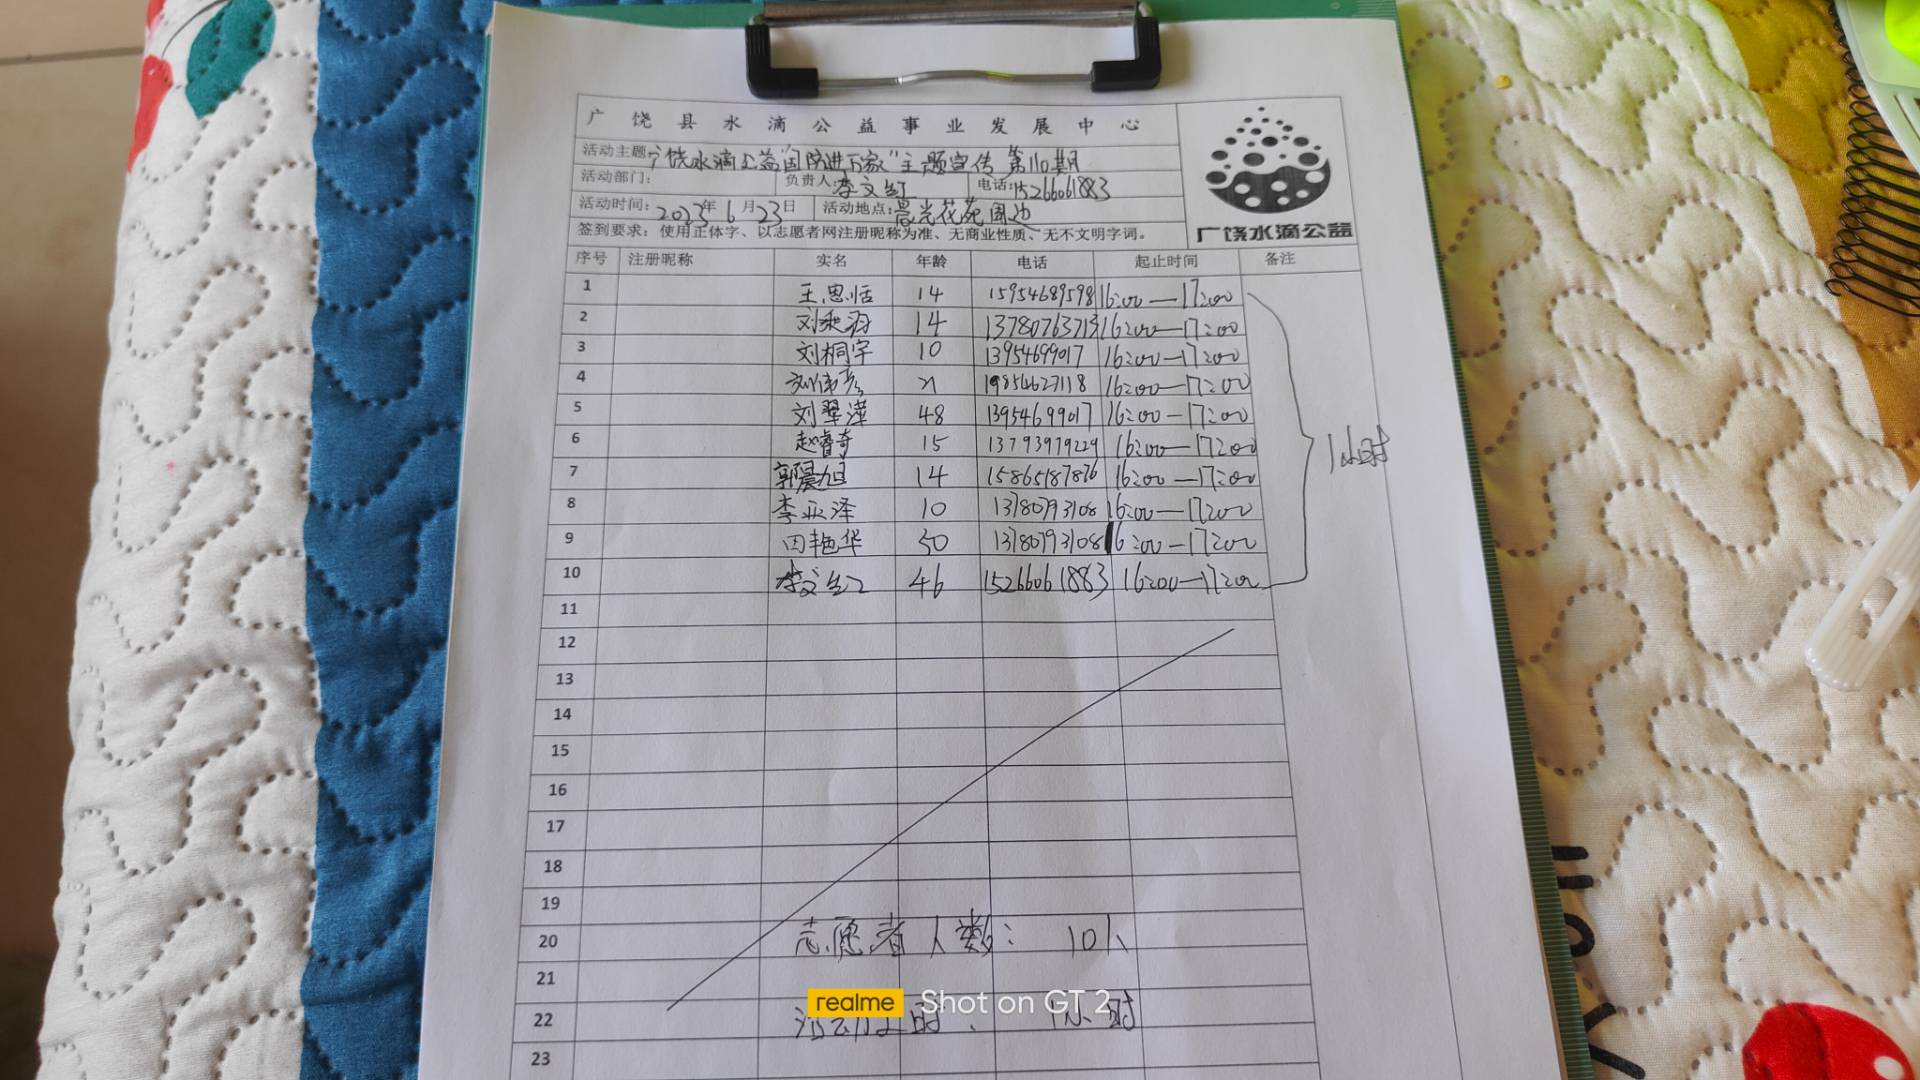 广饶县水滴公益事业发展中心
活动主题:广饶水滴公益"国防进万家"主题宣传 第110期
活动部门: 负责人:李文红 电话:15266061883
活动时间:2023年6月23日 活动地点:晨光花苑周边
签到要求:使用正体字、以志愿者网注册昵称为准、无商业性质、无不文明字词。
广饶水滴公益
序号 注册昵称 实名 年龄 电话 起止时间 备注
1 王思恬 14 15954689598 16:00—17:00
2 刘乘羽 14 13780763713 16:00—17:00
3 刘桐宇 10 13954699017 16:00—17:00
4 刘 21 19854627118 16:00—17:00
5 刘翠萍 48 13954699017 16:00—17:00
6 赵睿奇 15 13793979229 16:00—17:00
1小时
7 郭晨旭 14 15865187876 16:00—17:00
8 李亚泽 10 13780793108 16:00—17:00
9 田艳华 50 13780793108 16:00—17:00
10 李文红 46 15266061883 16:00—17:00
11
12
13
14
15
16
17
18
19
20 志愿者人数: 10人
21
22 活动 时: 1小时
23
realme Shot on GT 2